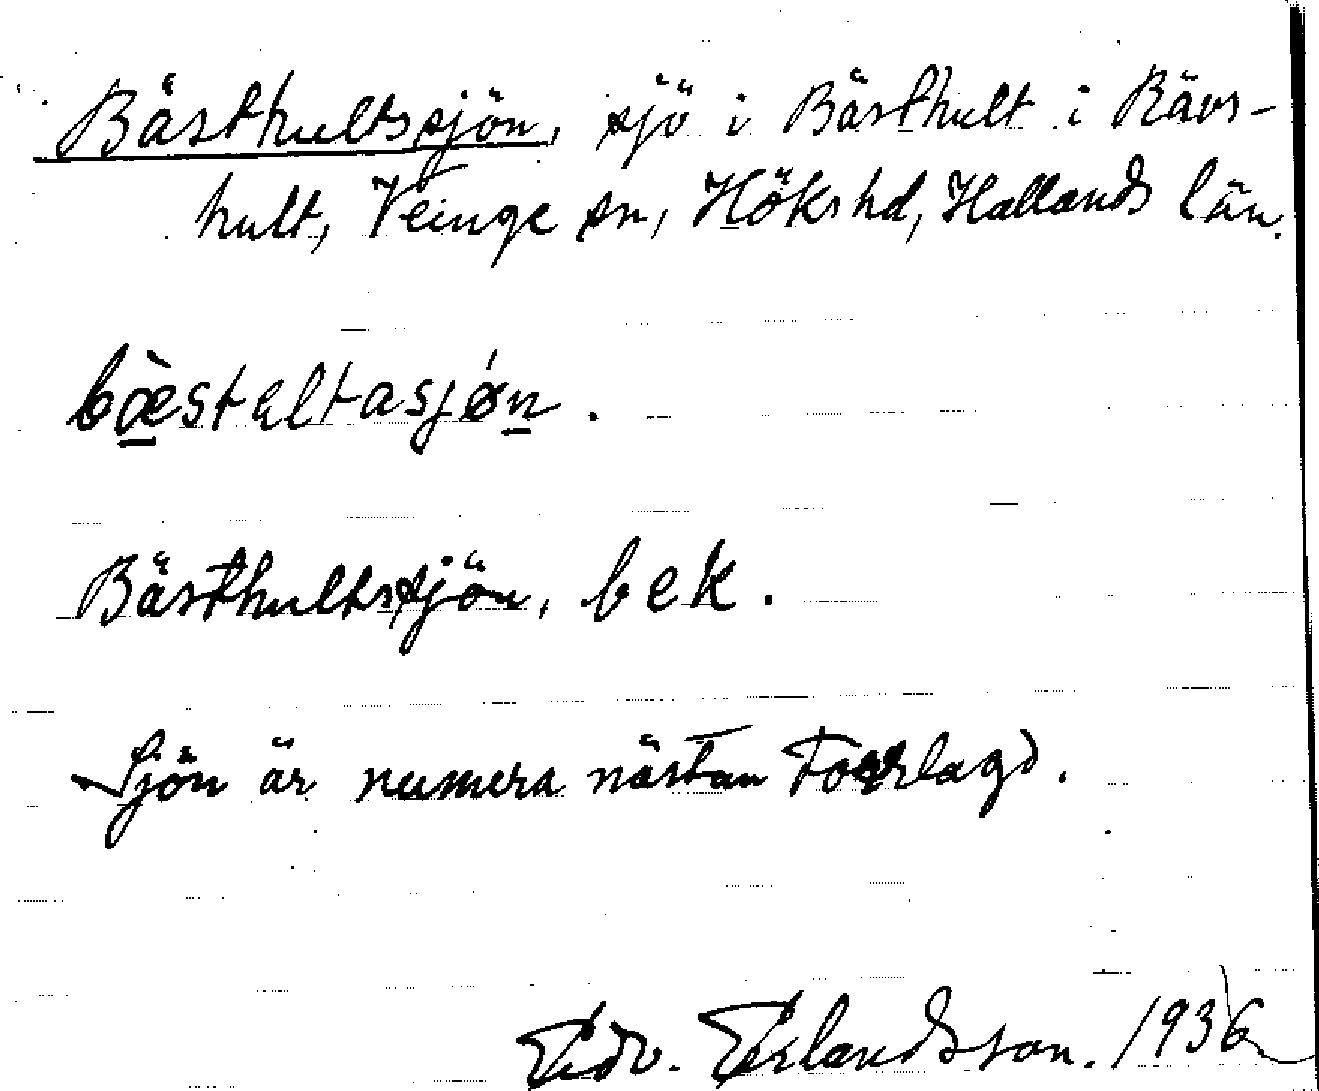 Bästhultssjön, sjö i Bästhult i Rävs-
hult, Veinge sn, Höks hd, Hallands län.
bæ̀staltasjǿn.
Bästhultssjön, bek.
Sjön är numera nästan torrlagd.
Edv. Erlandsson. 1936